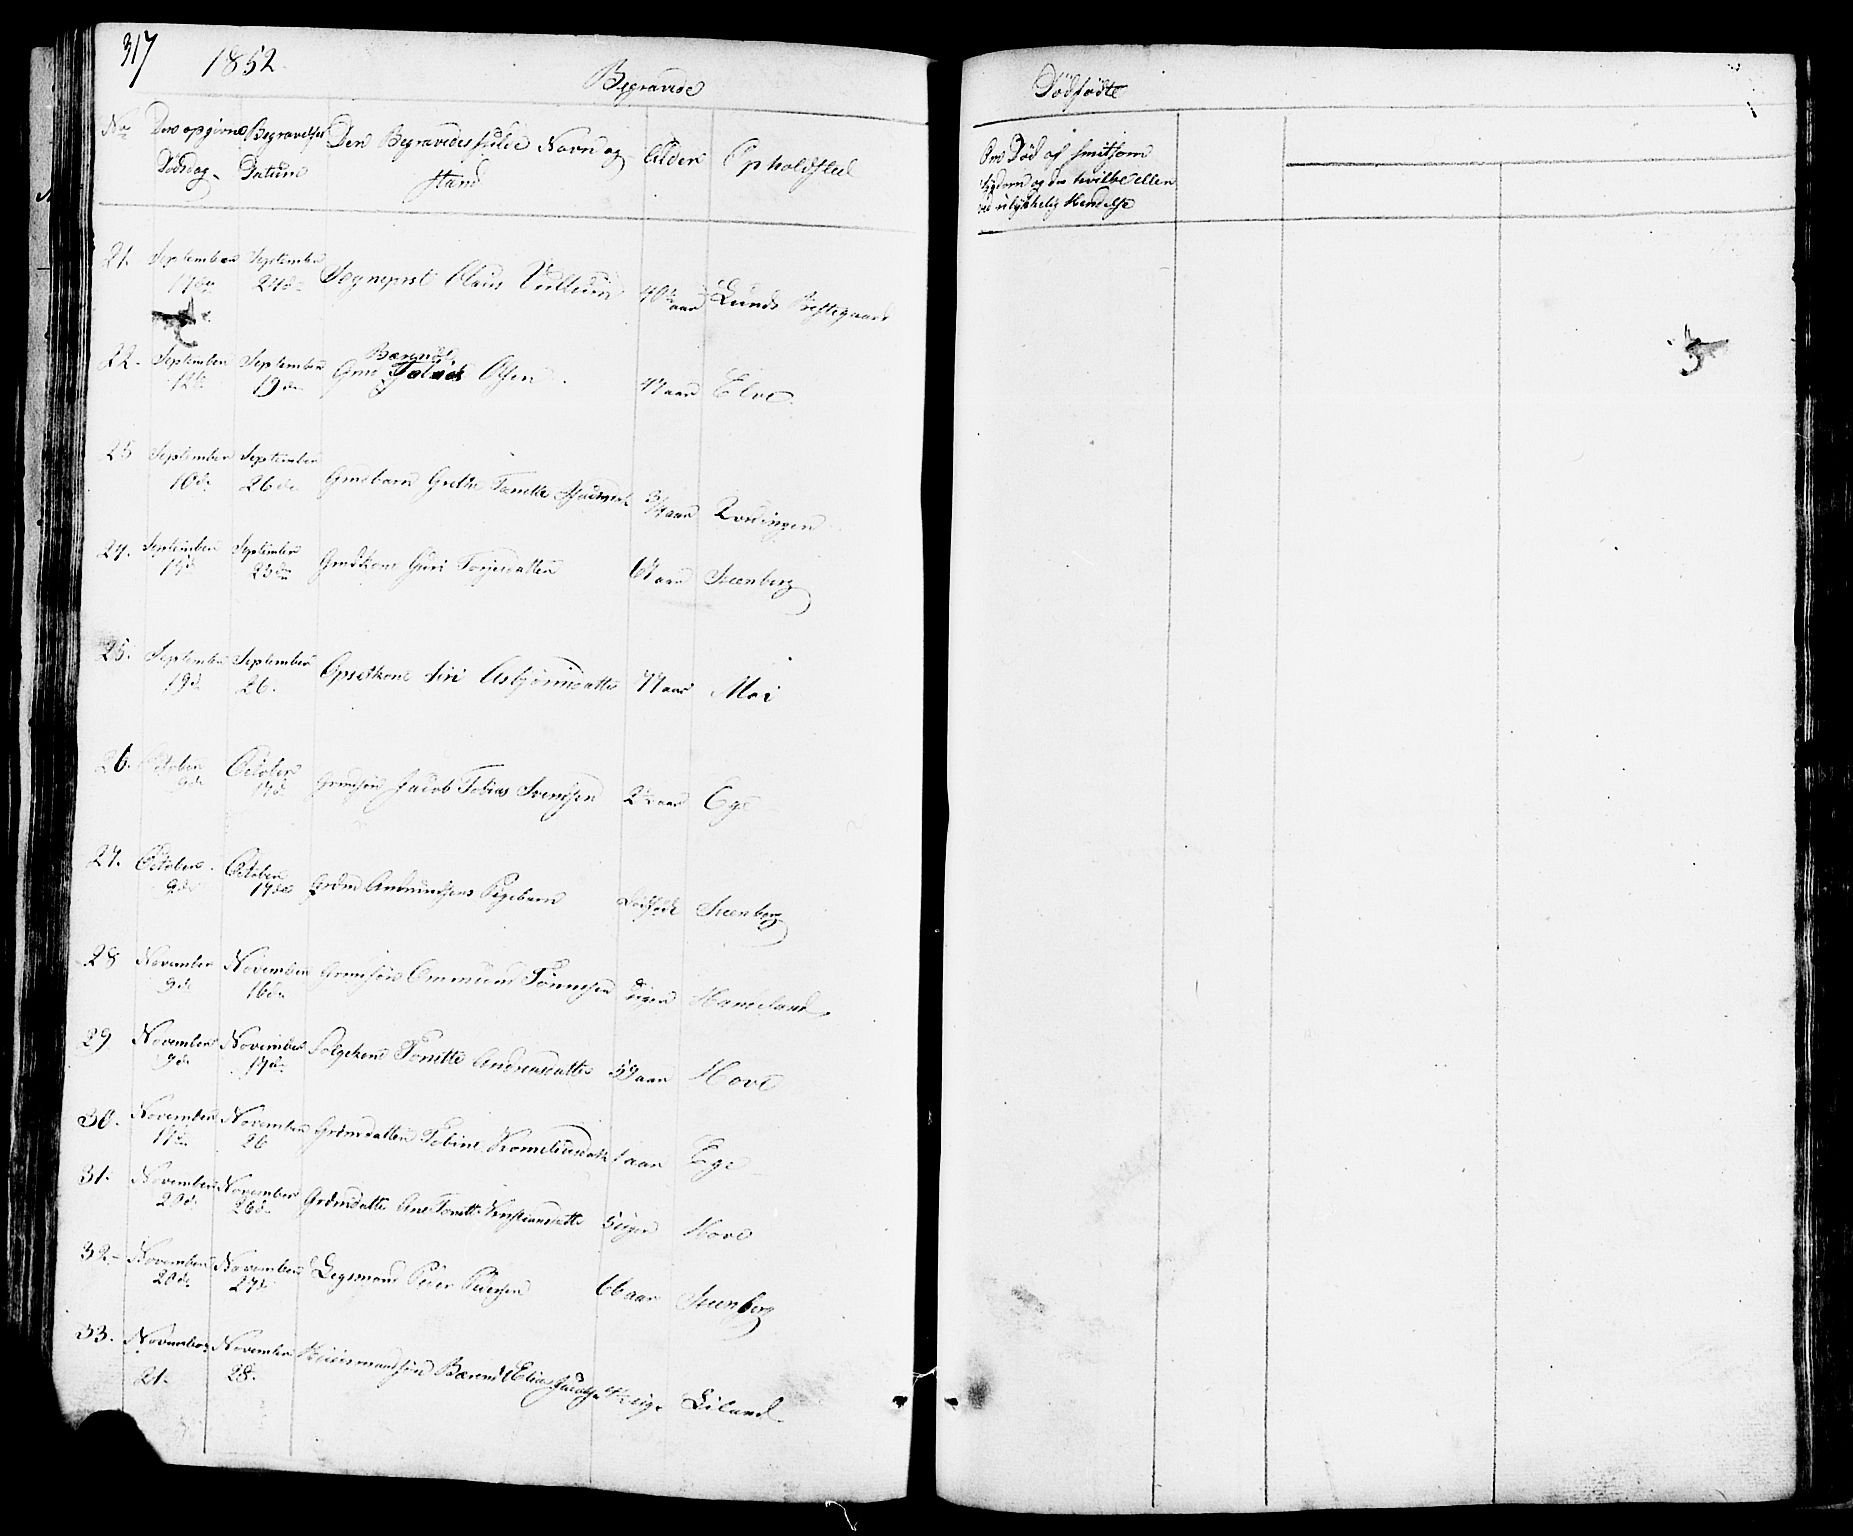 317
1852.
Begravede
No
Den opgivne Dødsdag.
Begravelses Datum
Den Begravedes fulde Navn og Stand
Alder
Opholdsted
21. September 17de September 24de Sogneprest Claus 40 aar Lunds Prestegaard
22. September 12te September 19de Gmd Bærendt Olsen 47 aar Elve.
23 September 10de September 26de Gmdbarn Grethe Tonette 3/4 aar
24. September 19de September 25de Gmdkone Guri Torjesdatter 67 aar Steenberg
25. September 19de September 26. Opsidkone Siri Asbjørnsdatter 77 aar Moi
26. October 9de October 17de Grmdsøn Jacob Tobias Svendsen 2 1/2 aar Ege
27. October 9de October 17de Grdmd Anbiørnsens Pigebarn Dødfødt Steenberg
28 November 9de November 16de Grmdsøn Ommund Tønnesen 8 uger Haukeland
29 November 9de November 17de Følgekone Tonette Andreasdatter 57 aar Hove
30. November 17de November 26 Grdmdatter Tobine Korneliusdatt 1 aar Ege
31. November 20de November 26de Grdmdatter Ane Tonette Kristiansdatter 5 uger Hove
32. November 20de November 27de Legsmand Peder Pedersen 66 aar Steenberg
33. November 21. November 28. Huusmandssøn Bærend Elias Jacobsen uger Eiland
Dødfødte
Om Død af smitsom
Sygdom og da hvilke eller
ved ulykkelig Hendelse